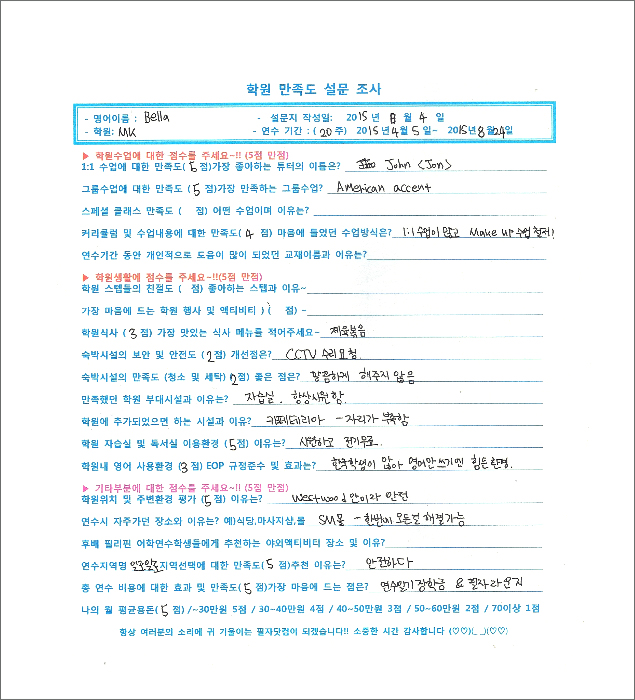 학원 만족도 설문 조사
- 영어이름 : Bella - 설문지 작성일: 2015년 8 월 4 일
- 학원: MK - 연수 기간 : ( 20 주) 2015년 4월 5일~ 2015년 8월 24일
▶ 학원수업에 대한 점수를 주세요~!! (5점 만점)
1:1 수업에 대한 만족도( 5점)가장 좋아하는 튜터의 이름은? John <Jon>
그룹수업에 대한 만족도 ( 5점)가장 만족하는 그룹수업? American accent
스페셜 클래스 만족도 ( 점) 어떤 수업이며 이유는?
커리큘럼 및 수업내용에 대한 만족도( 4 점) 마음에 들었던 수업방식은? 1:1 수업이 많고 Make up 수업 철저!
연수기간 동안 개인적으로 도움이 많이 되었던 교재이름과 이유는?
▶ 학원생활에 점수를 주세요~!!(5점 만점)
학원 스텝들의 친절도 ( 점) 좋아하는 스텝과 이유~
가장 마음에 드는 학원 행사 및 액티비티 ) ( 점) ~
학원식사 ( 3점) 가장 맛있는 식사 메뉴를 적어주세요~ 제육볶음
숙박시설의 보안 및 안전도 ( 2점) 개선점은? CCTV 수리요청
숙박시설의 만족도 (청소 및 세탁) ( 2점) 좋은 점은? 깔끔하게 해주지 않음
만족했던 학원 부대시설과 이유는? 자습실. 항상시원함.
학원에 추가되었으면 하는 시설과 이유? 카페테리아 - 자리가 부족함
학원 자습실 및 독서실 이용환경 ( 5점) 이유는? 시원하고 전기무료.
학원내 영어 사용환경 ( 3점) EOP 규정준수 및 효과는? 한국학생이 많아 영어만쓰기엔 힘든환경.
▶ 기타부분에 대한 점수를 주세요~!! (5점 만점)
학원위치 및 주변환경 평가 ( 5점) 이유는? Westwood안이라 안전
연수시 자주가던 장소와 이유는? 예)식당,마사지샵,몰 SM몰 - 한번에 모든걸 해결가능
후배 필리핀 어학연수학생들에게 추천하는 야외액티비터 장소 및 이유?
연수지역명 일로일로지역선택에 대한 만족도( 5 점)추천 이유는? 안전하다
총 연수 비용에 대한 효과 및 만족도( 5점)가장 마음에 드는 점은? 연수일기장학금 & 필자라운지
나의 월 평균용돈( 5 점) /~30만원 5점 / 30~40만원 4점 / 40~50만원 3점 / 50~60만원 2점 / 70이상 1점
항상 여러분의 소리에 귀 기울이는 필자닷컴이 되겠습니다!! 소중한 시간 감사합니다 (♡♡)(_ _)(♡♡)